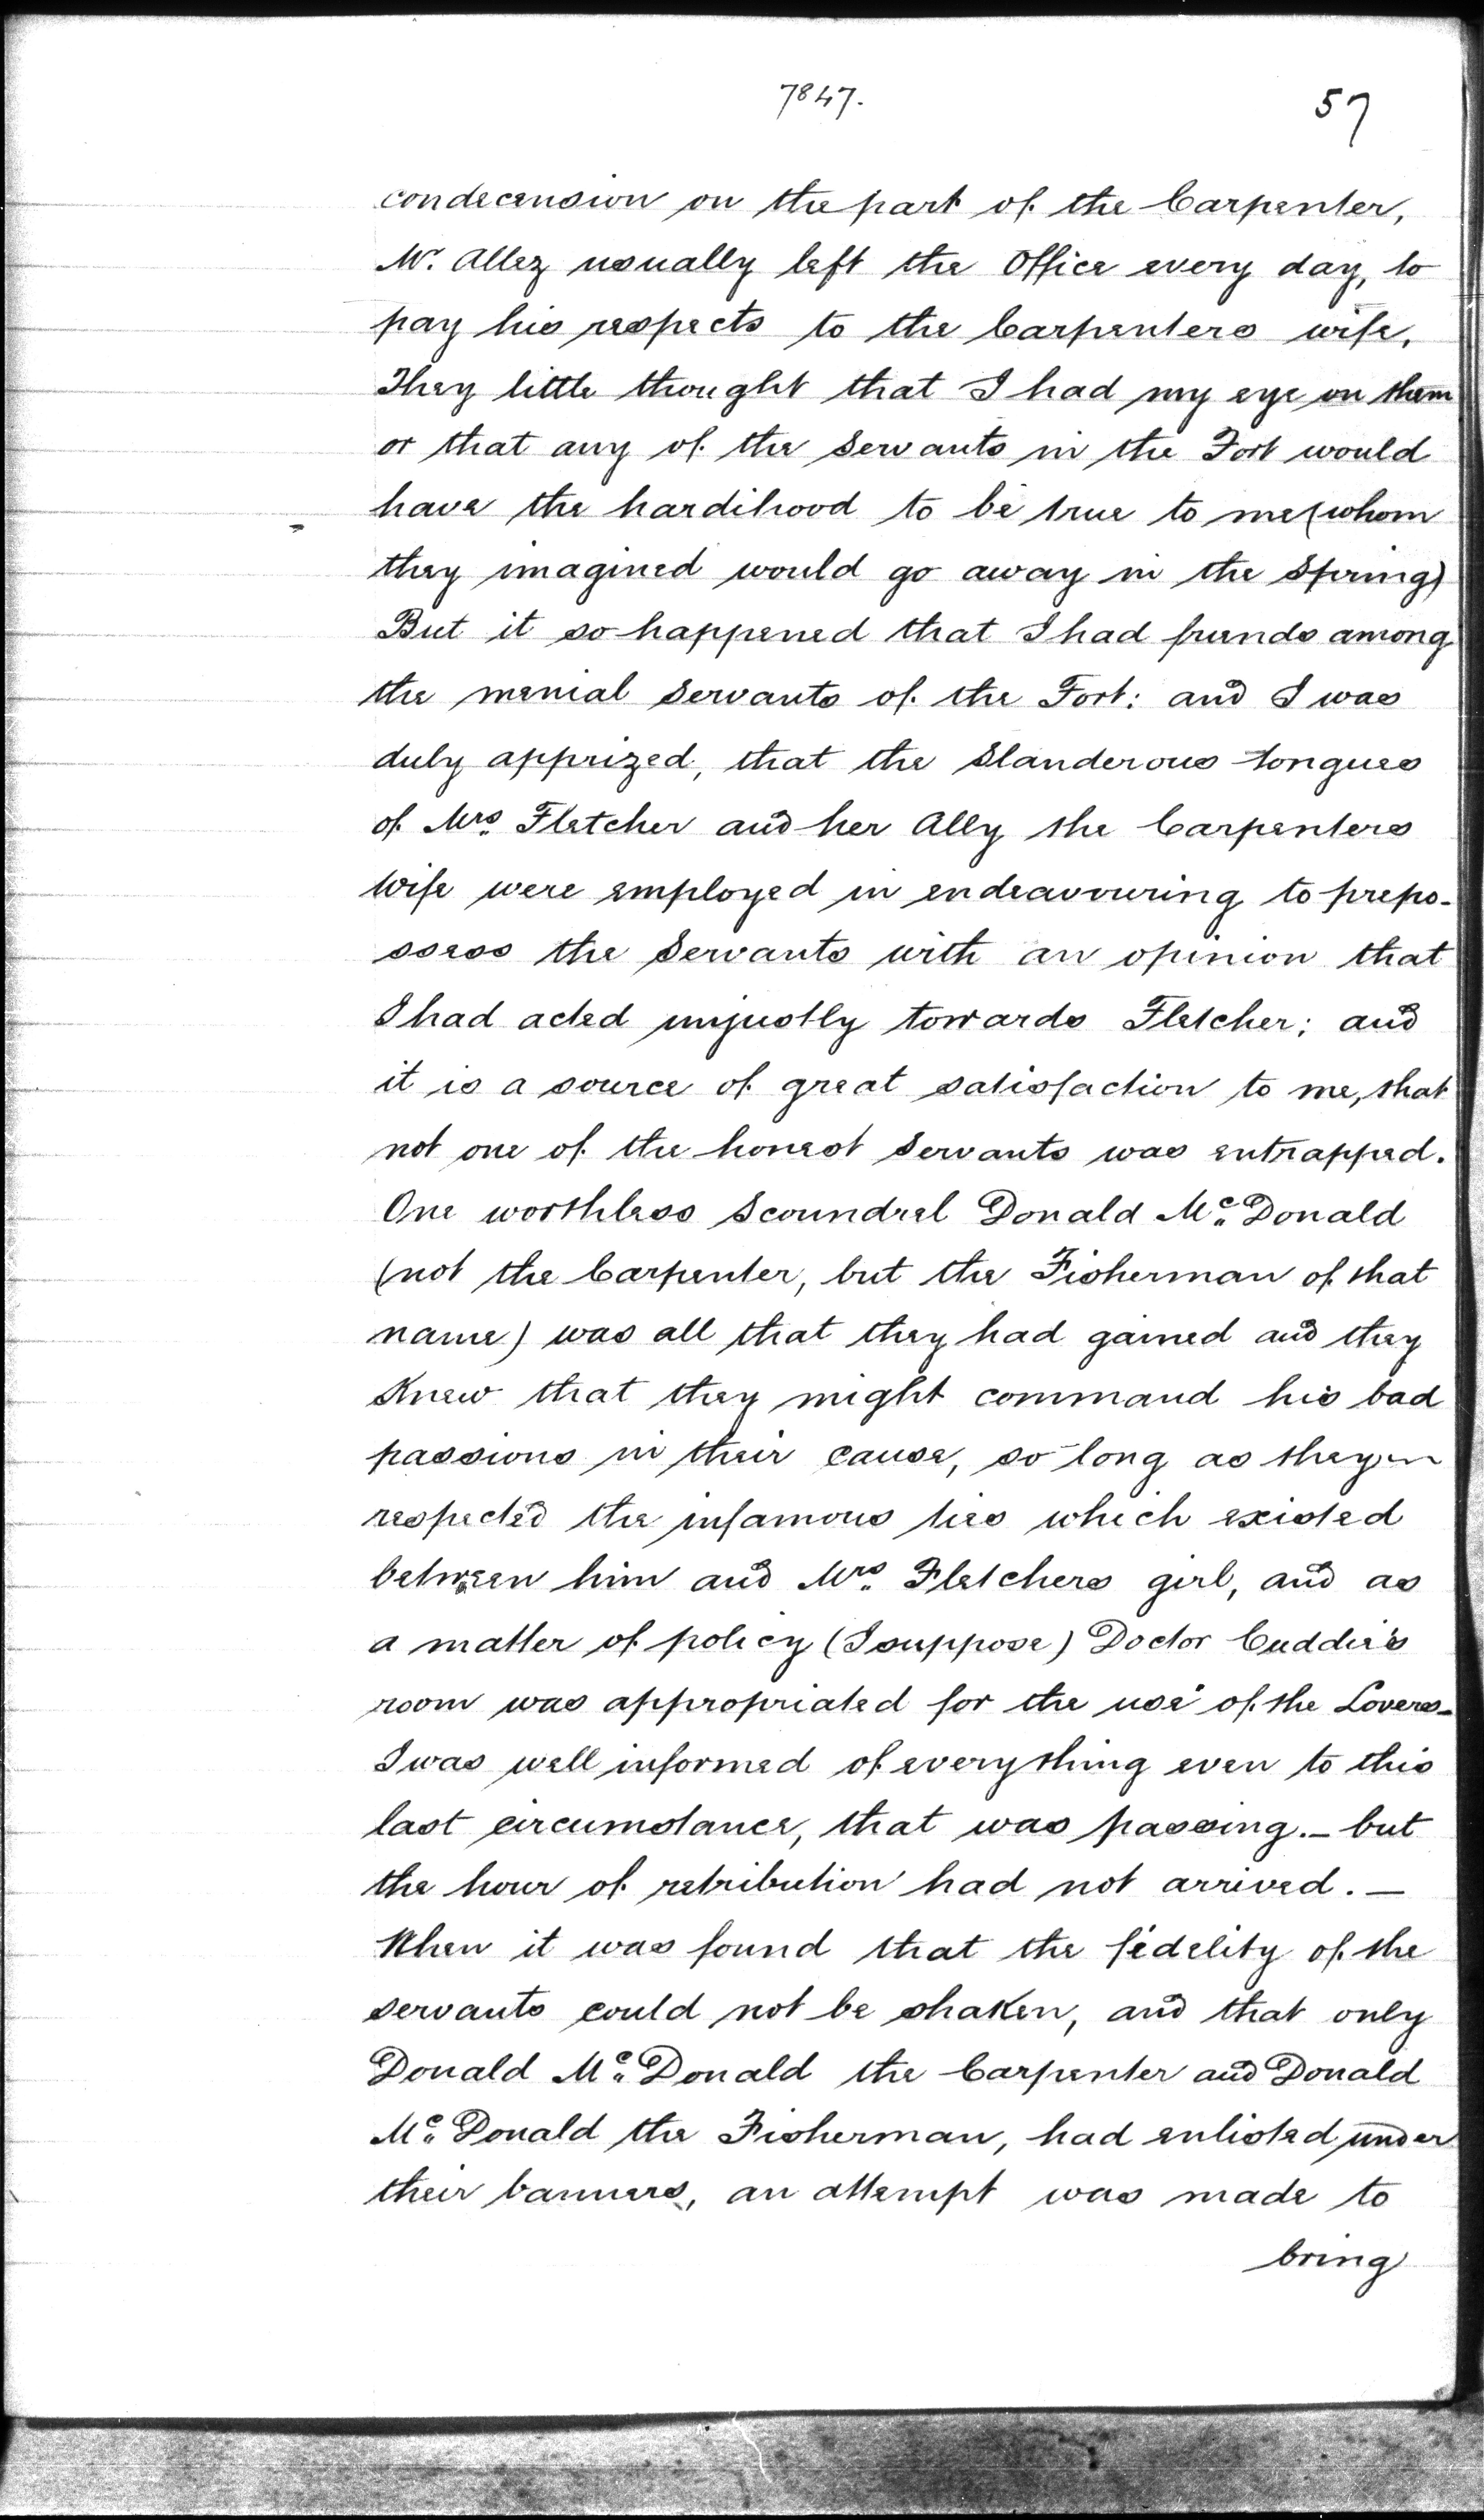 7847.
57
condecension on the part of the Carpenter,
Mr. Allez usually left the Office every day, to
pay his respects to the Carpenters wife.
They little thought that I had my eye on them
or that any of the Servants in the Fort would
have the hardihood to be true to me (whom
they imagined would go away in the Spring)
But it so happened that I had friends among
the menial Servants of the Fort: and I was
duly apprized, that the Slanderous tongues
of Mrs. Fletcher and her Ally the Carpenters
Wife were employed in endeavouring to prepo-
ssess the Servants with an opinion that
I had acted unjustly towards Fletcher; and
it is a source of great satisfaction to me, that
not one of the honest Servants was entrapped.
One worthless Scoundrel Donald Mc. Donald
(not the Carpenter, but the Fisherman of that
name) was all that they had gained and they
Knew that they might command his bad
passions in their cause, so long as they
respected the infamous ties which existed
between him and Mrs. Fletchers girl, and as
a matter of policy (I suppose) Doctor Cuddie's
room was appropriated for the use of the Lovers-
I was well informed of everything even to this
last circumstance, that was passing.- but
the hour of retribution had not arrived. —
When it was found that the fidelity of the
servants could not be shaken, and that only
Donald Mc. Donald the Carpenter and Donald
Mc. Donald the Fisherman, had enlisted under
their banners, an attempt was made to
bring